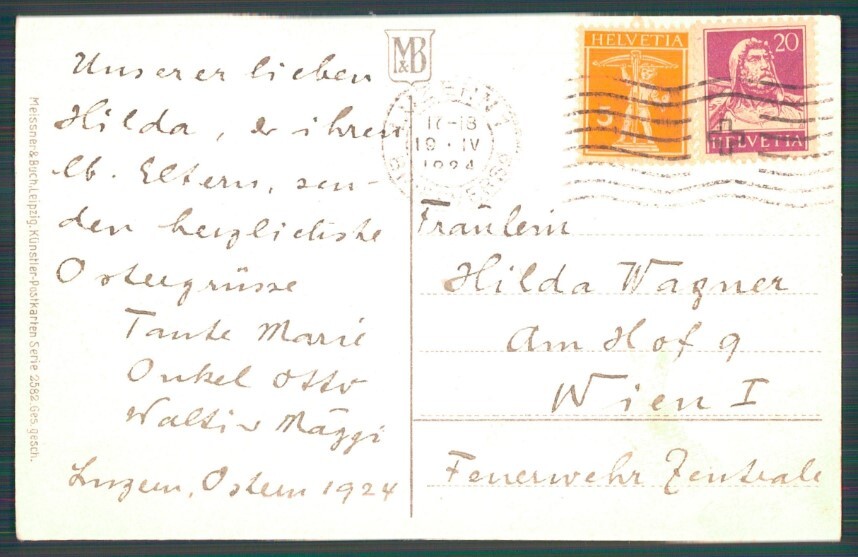 Unserer lieben
Hilda, & ihren
lb. Eltern, sen-
den herzlichste
Ostergrüsse
Tante Marie
Onkel Otto
Mäggi
Luzern, Ostern 1924
Meissner & Buch, Leipzig, Künstler-Postkarten Serie 2582. Ges. gesch.
M&B
17-18
19·IV
1924
HELVETIA
5
20
HELVETIA
Fräulein
Hilda Wagner
Am Hof 9
Wien I
Feuerwehr Zentrale